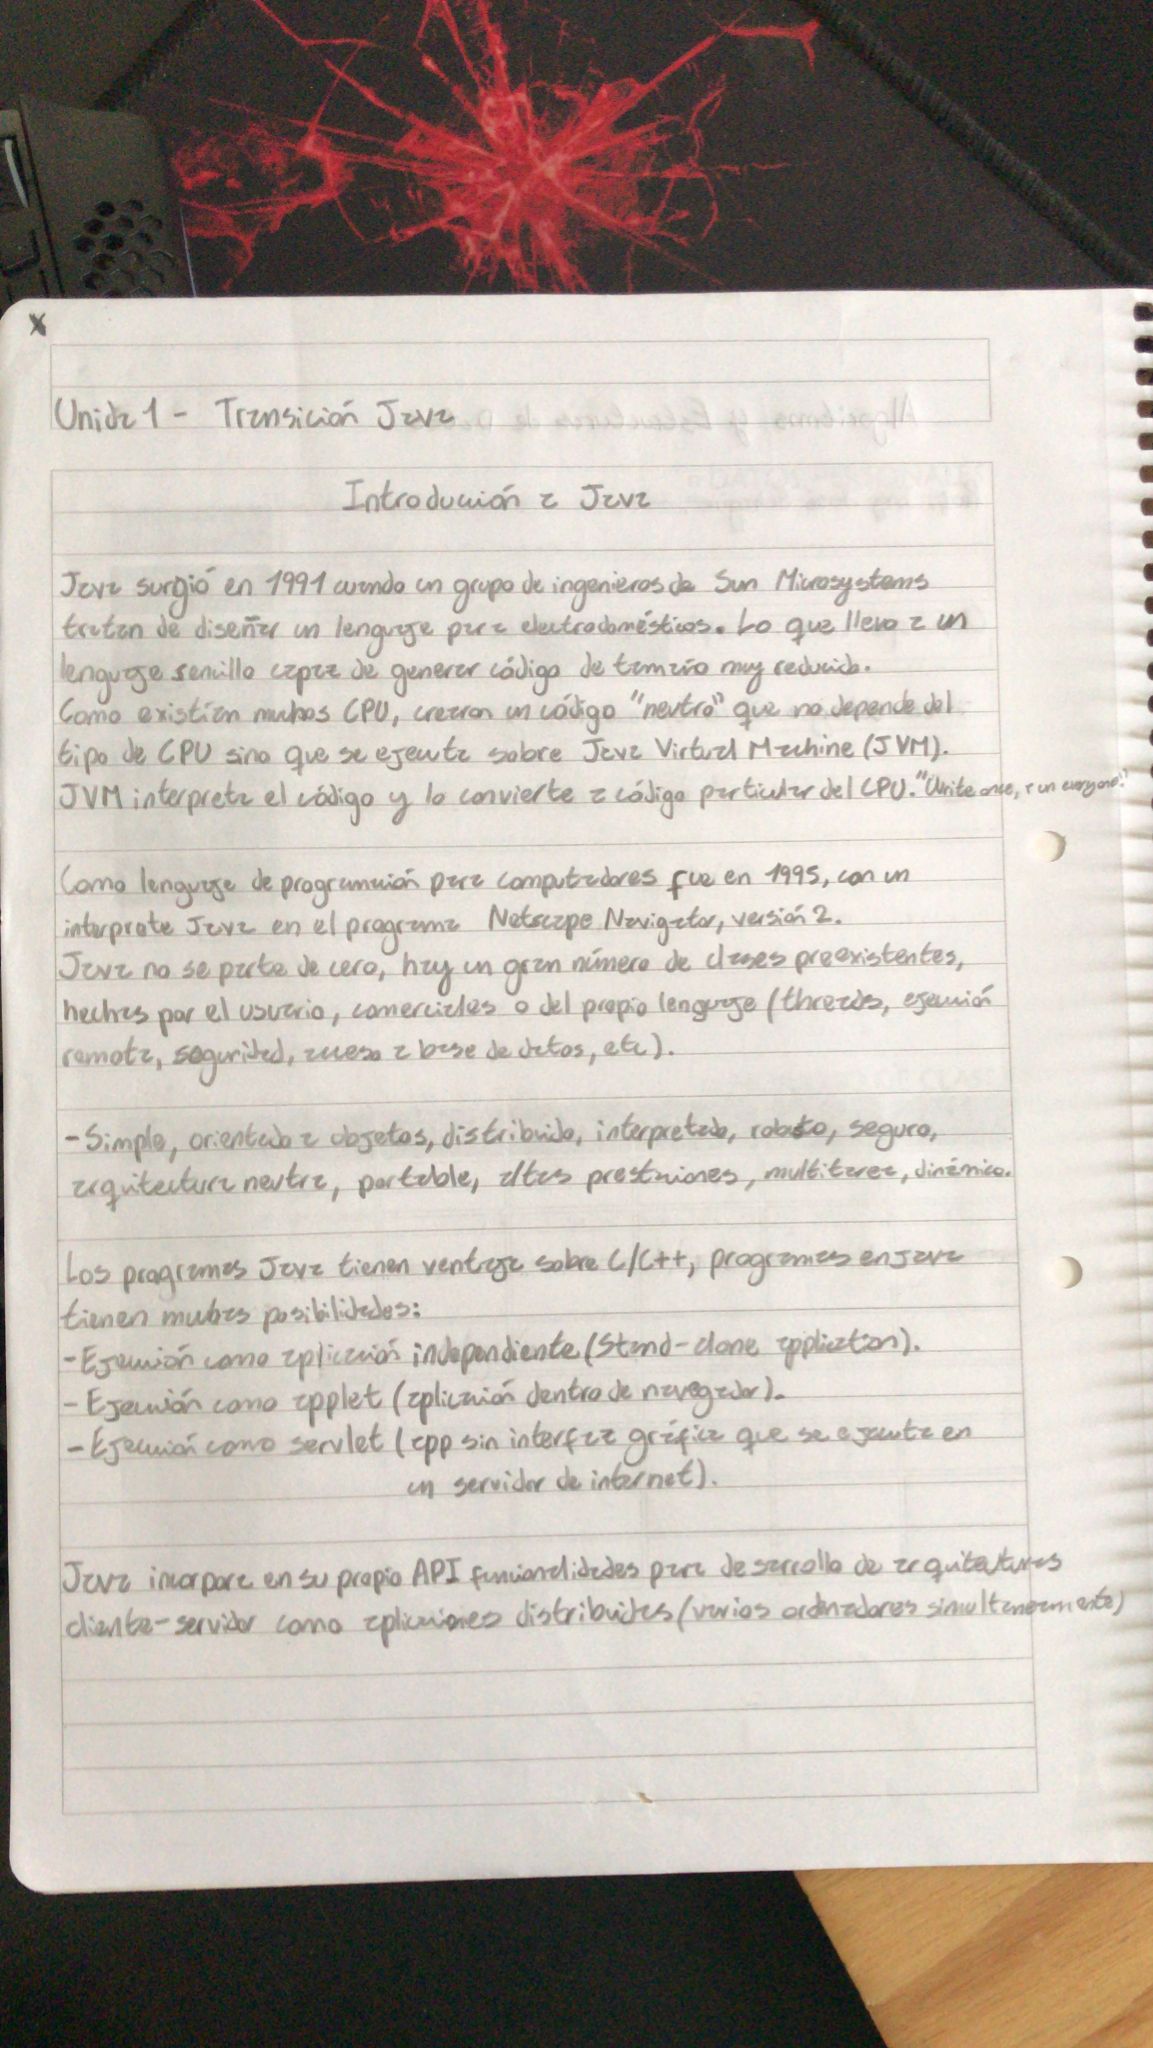 x
Unida 1 - Transición Java
Introducción a Java
Java surgió en 1991 cuando un grupo de ingenieros de Sun Microsystems
tratan de diseñar un lenguaje para electrodomésticos. Lo que llevo a un
lenguaje sencillo capaz de generar código de tamaño muy reducido.
Como existían muchos CPU, crearon un código "neutro" que no depende del
tipo de CPU sino que se ejecuta sobre Java Virtual Machine (JVM).
JVM interpreta el código y lo convierte a código particular del CPU. "Write once, run everyone"
Como lenguaje de programación para computadores fue en 1995, con un
interprete Java en el programa Netscape Navigator, versión 2.
Java no se parte de cero, hay un gran número de clases preexistentes,
hechas por el usuario, comerciales o del propio lenguaje (threads, ejecución
remota, seguridad, acceso a base de datos, etc).
- Simple, orientado a objetos, distribuido, interpretado, robusto, seguro,
arquitectura neutra, portable, altas prestaciones, multitarea, dinámico.
Los programas Java tienen ventaja sobre C/C++, programas en Java
tienen muchas posibilidades:
- Ejecución como aplicación independiente (Stand-alone application).
- Ejecución como applet (aplicación dentro de navegador).
- Ejecución como servlet (app sin interfaz gráfica que se ejecuta en
un servidor de internet).
Java incorpora en su propio API funcionalidades para desarrollo de arquitecturas
cliente-servidor como aplicaciones distribuidas (varios ordenadores simultaneamente)